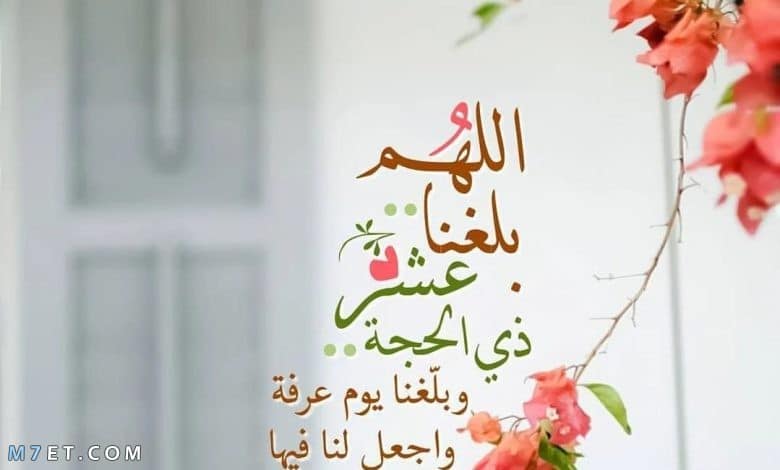 اللهُم
بلغنا..
عشر
ذي الحجة..
وبلّغنا يوم عرفة
واجعل لنا فيها
M7ET.COM